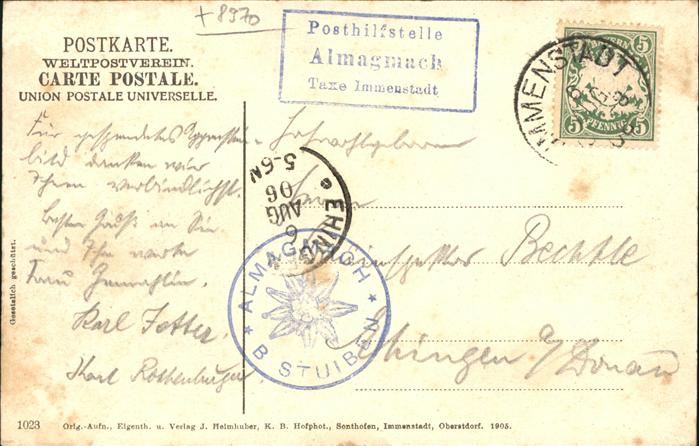 + 8970
Posthilfstelle
Almagmach
Taxe Immenstadt
BAYERN
5 5
5 PFENNIG 5
IMMENSTADT
POSTKARTE.
WELTPOSTVEREIN.
CARTE POSTALE.
UNION POSTALE UNIVERSELLE.
Für gespendetes
bild danken wir
Ihnen verbindlichst.
Besten Gruß an Sie
und Ihre werte
Frau Gemahlin.
Karl Fetter.
Karl Rothenburger
Herrn
Bechtle
Ehingen a/Donau
EHINGEN
6
AUG
06
5-6N
ALMAGMACH
B STUIBEN
Gesetzlich geschützt.
1023 Orig.-Aufn., Eigenth. u. Verlag J. Heimhuber, K. B. Hofphot., Sonthofen, Immenstadt, Oberstdorf. 1905.